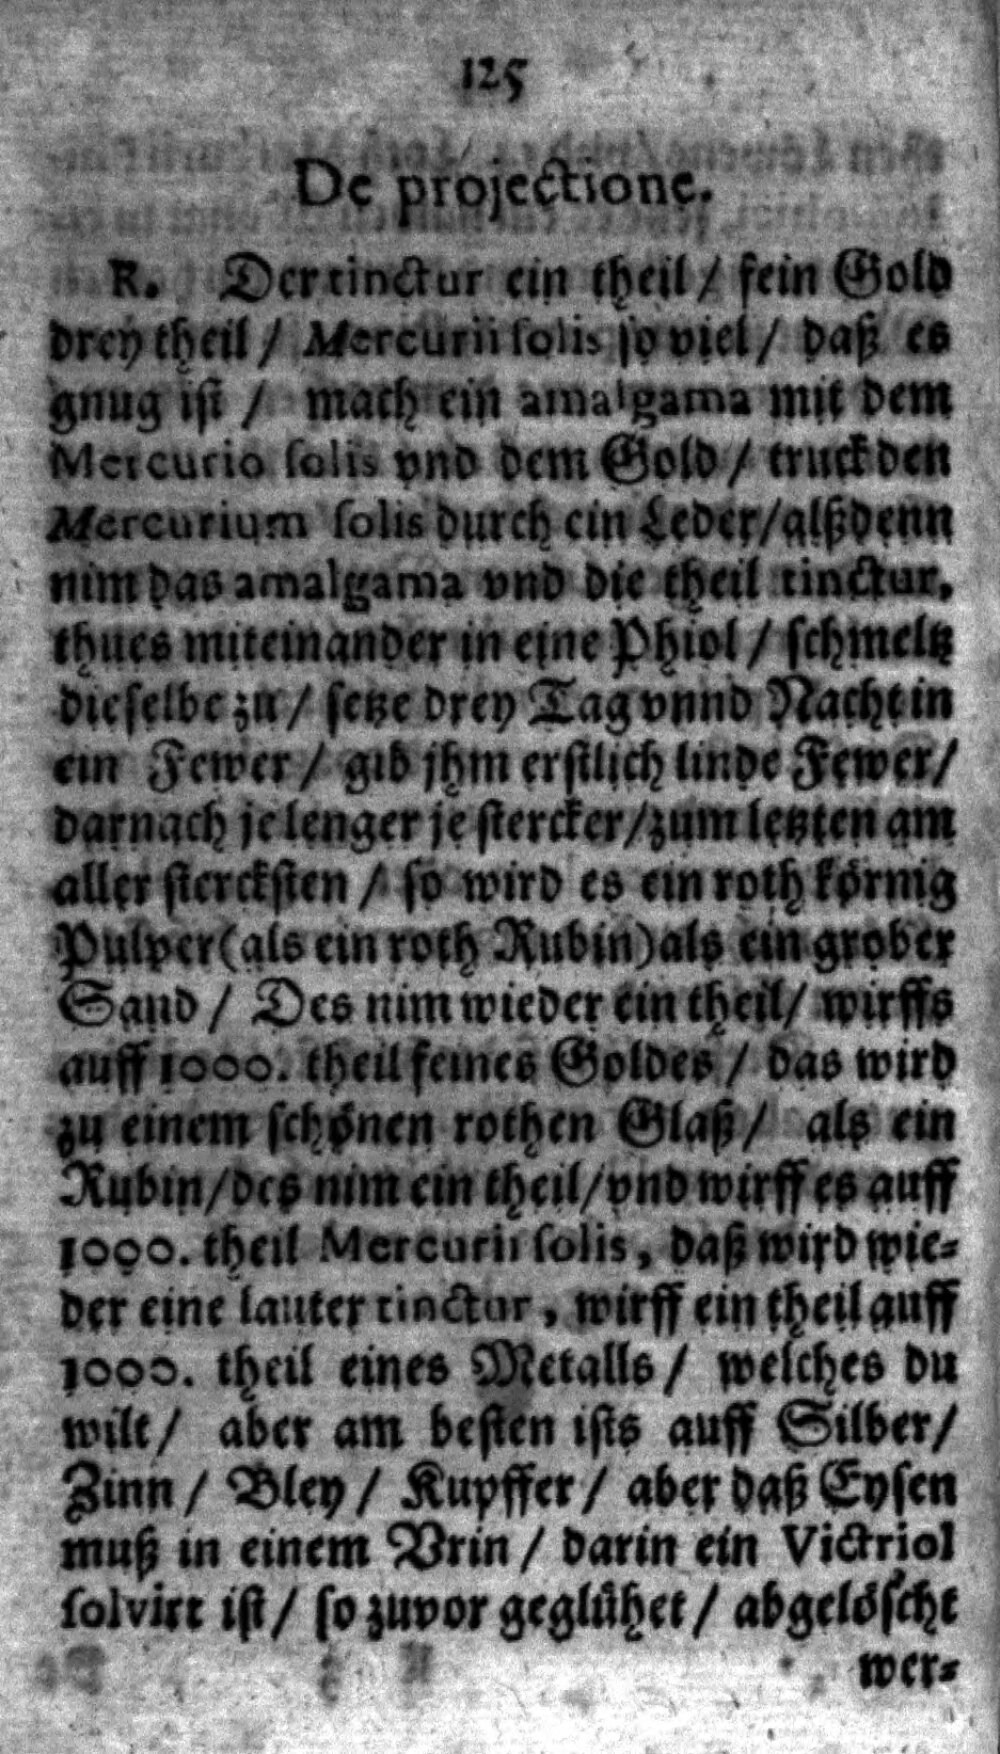 125
De projectione.
R. Der tinctur ein theil / fein Gold
drey theil / Mercurii solis so viel / daß es
gnug ist / mach ein amalgama mit dem
Mercurio solis vnd dem Gold / truck den
Mercurium solis durch ein Leder / alßdenn
nim das amalgama vnd die theil tinctur,
thues miteinander in eine Phiol / schmeltz
dieselbe zu / setze drey Tag vnnd Nacht in
ein Fewer / gib jhm erstlich linde Fewer /
darnach je lenger je stercker / zum letzten am
aller stercksten / so wird es ein roth körnig
Pulver (als ein roth Rubin) als ein grober
Sand / Des nim wieder ein theil / wirffs
auff 1000. theil feines Goldes / das wird
zu einem schönen rothen Glaß / als ein
Rubin / des nim ein theil / vnd wirff es auff
1000. theil Mercurii solis, daß wird wie-
der eine lauter tinctur, wirff ein theil auff
1000. theil eines Metalls / welches du
wilt / aber am besten ists auff Silber /
Zinn / Bley / Kupffer / aber daß Eysen
muß in einem Vrin / darin ein Victriol
solvirt ist / so zuvor geglühet / abgelöscht
wer-